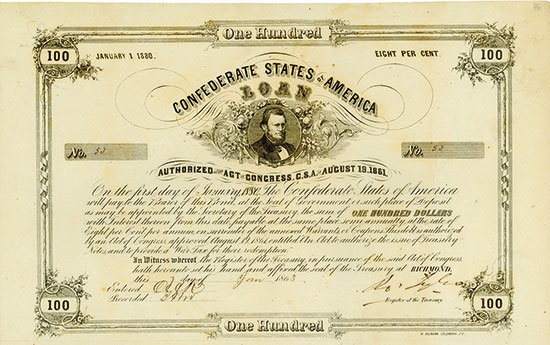 One Hundred
100 JANUARY 1 1880. EIGHT PER CENT. 100
CONFEDERATE STATES OF AMERICA
LOAN
No. 53 53
AUTHORIZED BY ACT OF CONGRESS, C.S.A. OF AUGUST 19. 1861.
On the first day of January, 1880, The Confederate States of America
will pay to the Bearer of this Bond, at the Seat of Government or such place of Deposit
as may be appointed by the Secretary of the Treasury, the sum of ONE HUNDRED DOLLARS
with Interest thereon from this date, payable at the same place, semi annually, at the rate of
Eight per Cent per annum, on surrender of the annexed Warrants or Coupons. This debt is authorized
by an Act of Congress approved August 19, 1861, entitled An Act to authorize the issue of Treasury
Notes, and to provide a War Tax for their redemption.
In Witness whereof, the Register of the Treasury, in pursuance of the said Act of Congress
hath hereunto set his hand and affixed the seal of the Treasury at RICHMOND,
this day of Jan 1863
Entered
Recorded
Register of the Treasury
100 100
One Hundred